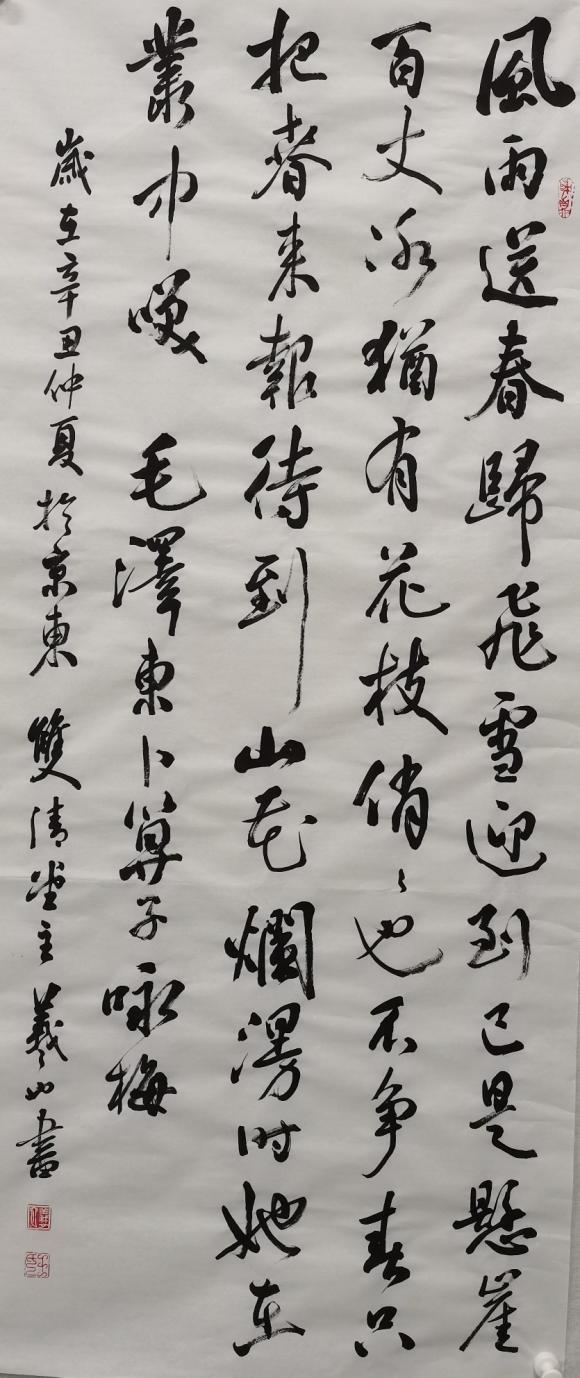 風雨送春歸飛雪迎到已是懸崖
百丈冰猶有花枝俏々也不争春只
把春来報待到山花爛漫时她在
叢中咲 毛澤東卜算子咏梅
歲在辛丑仲夏於京東 雙清堂主羲山